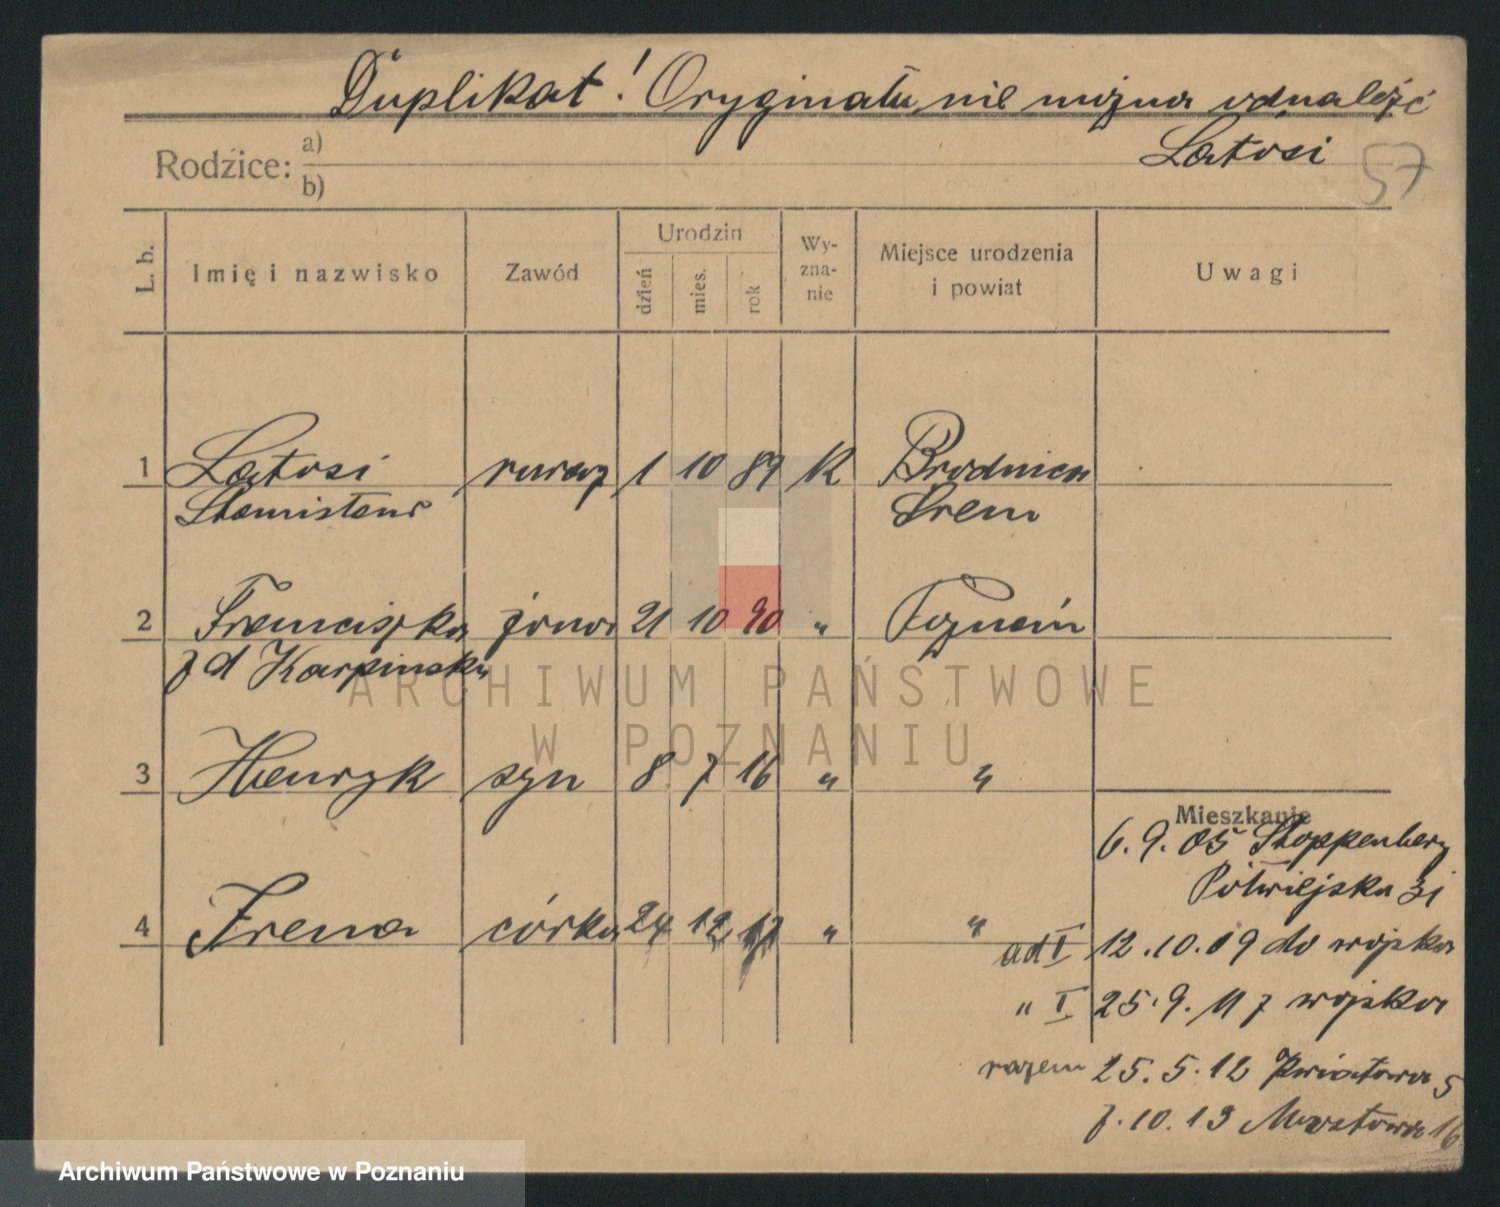 Duplikat! Oryginału nie można odnaleźć
Latosi
57
Rodzice: a)
b)
L. b.
Imię i nazwisko
Zawód
Urodzin
dzień
mies.
rok
Wy-
zna-
nie
Miejsce urodzenia
i powiat
Uwagi
1 Latosi rurarz 1 10 89 K Brodnica
Stanisław Śrem
2 Franciszka żona 21 10 90 " Poznań
z d Karpińska
3 Henryk syn 8 7 16 " "
Mieszkanie
6. 9. 05 Stoppenberg
Półwiejska 31
4 Irena córka 24 12 17 " "
ad I 12.10.09 do wojska
" I 25.9.11 z wojska
razem 25.5.12 Kwiatowa 5
7.10.13 Mostowa 16
ARCHIWUM PAŃSTWOWE
W POZNANIU
Archiwum Państwowe w Poznaniu